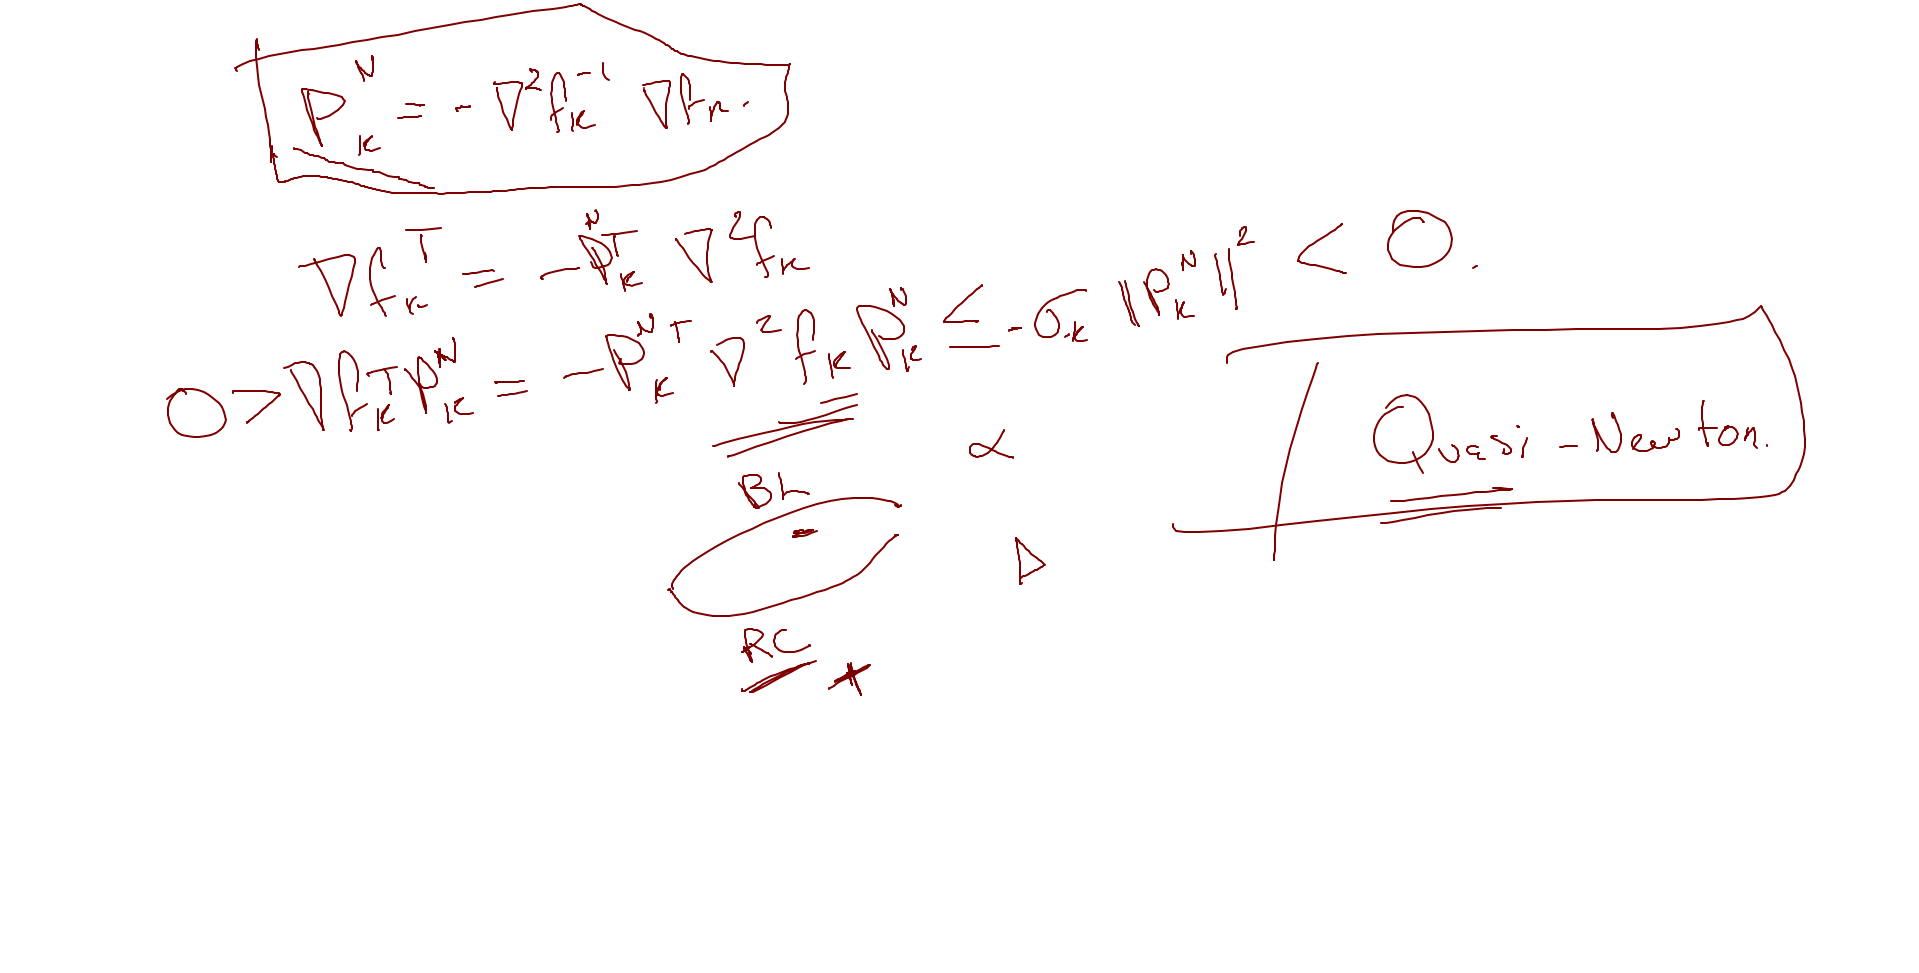 P_k^N = - ∇²f_k^{-1} ∇f_k.
∇f_k^T = - P_k^{N T} ∇²f_k
0 > ∇f_k^T P_k^N = - P_k^{N T} ∇²f_k P_k^N ≤ - σ_k ‖P_k^N‖² < 0.
Quasi - Newton.
BL α
Δ
RC *